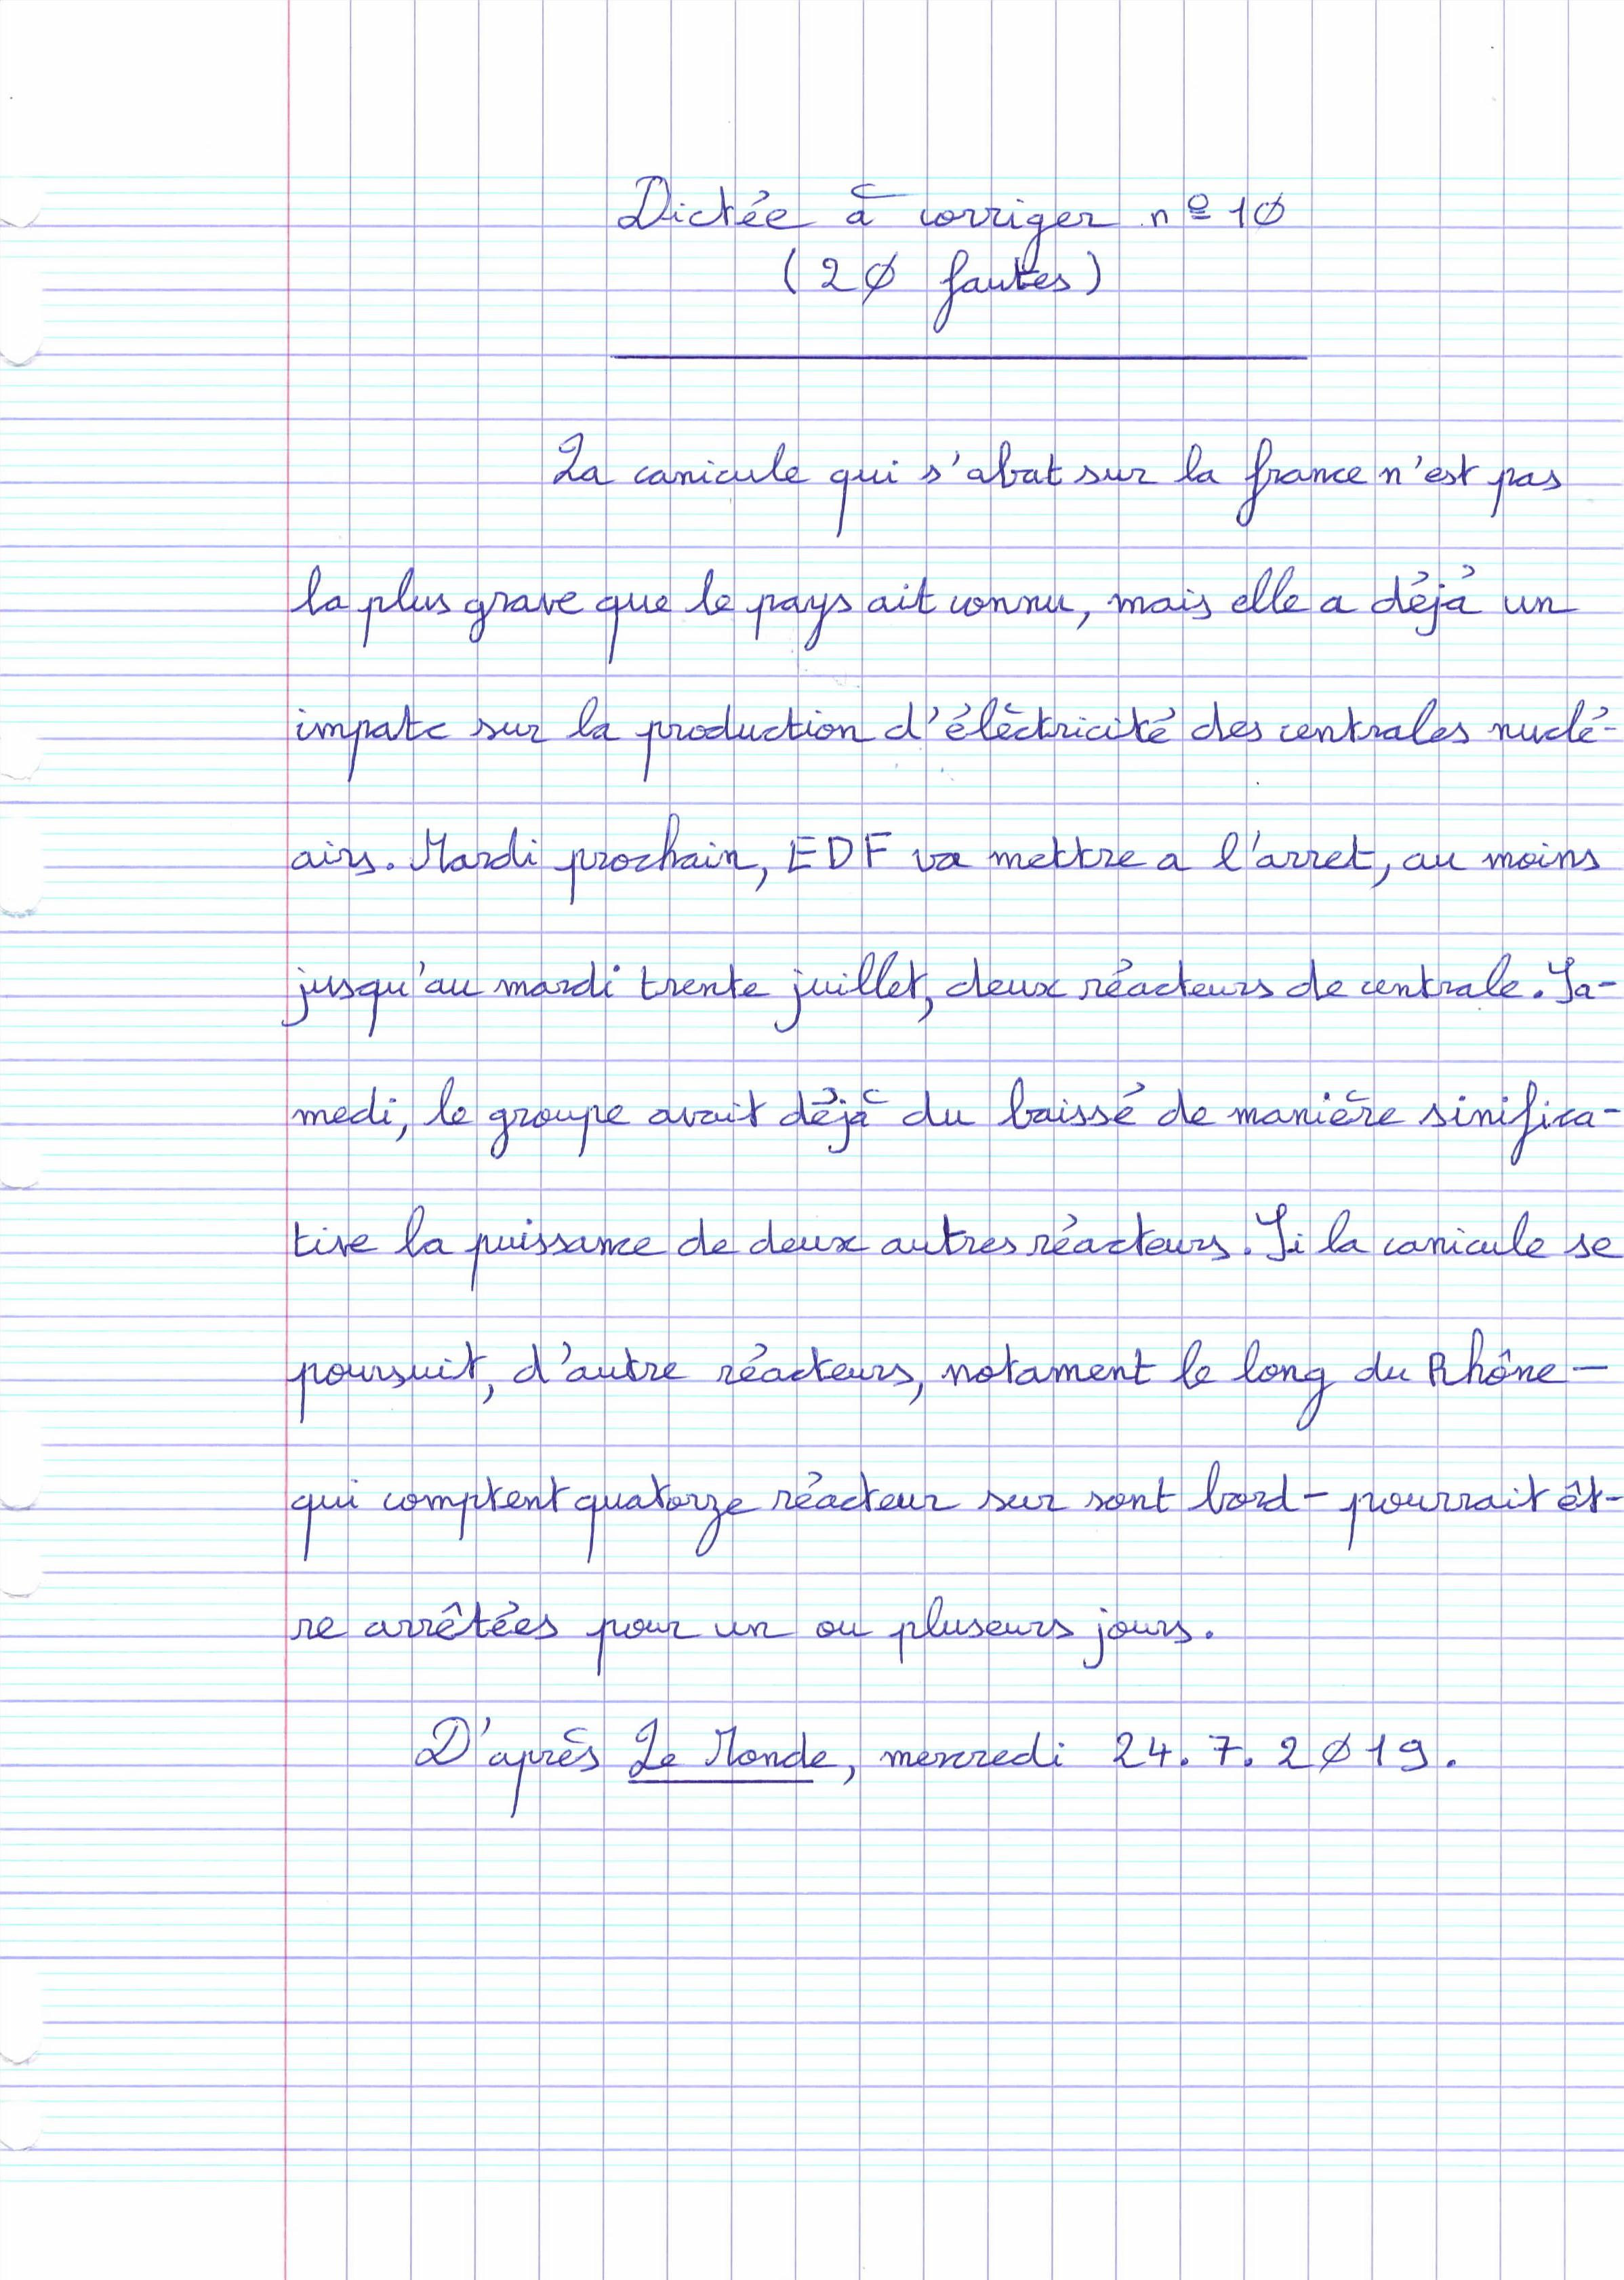 Dictée à corriger nº 10
(20 fautes)
La canicule qui s'abat sur la france n'est pas
la plus grave que le pays ait connu, mais elle a déjá un
impatc sur la production d'élèctricité des centrales nuclé-
airs. Mardi prochain, EDF va mettre a l'arret, au moins
jusqu'au mardi trente juillet, deux réacteurs de centrale. Sa-
medi, le groupe avait déjà du baissé de manière sinifica-
tive la puissance de deux autres réacteurs. Si la canicule se
poursuit, d'autre réacteurs, notament le long du Rhône -
qui comptent quatorze réacteur sur sont bord - pourrait êt-
re arrêtées pour un ou pluseurs jours.
D'après Le Monde, mercredi 24.7.2019.